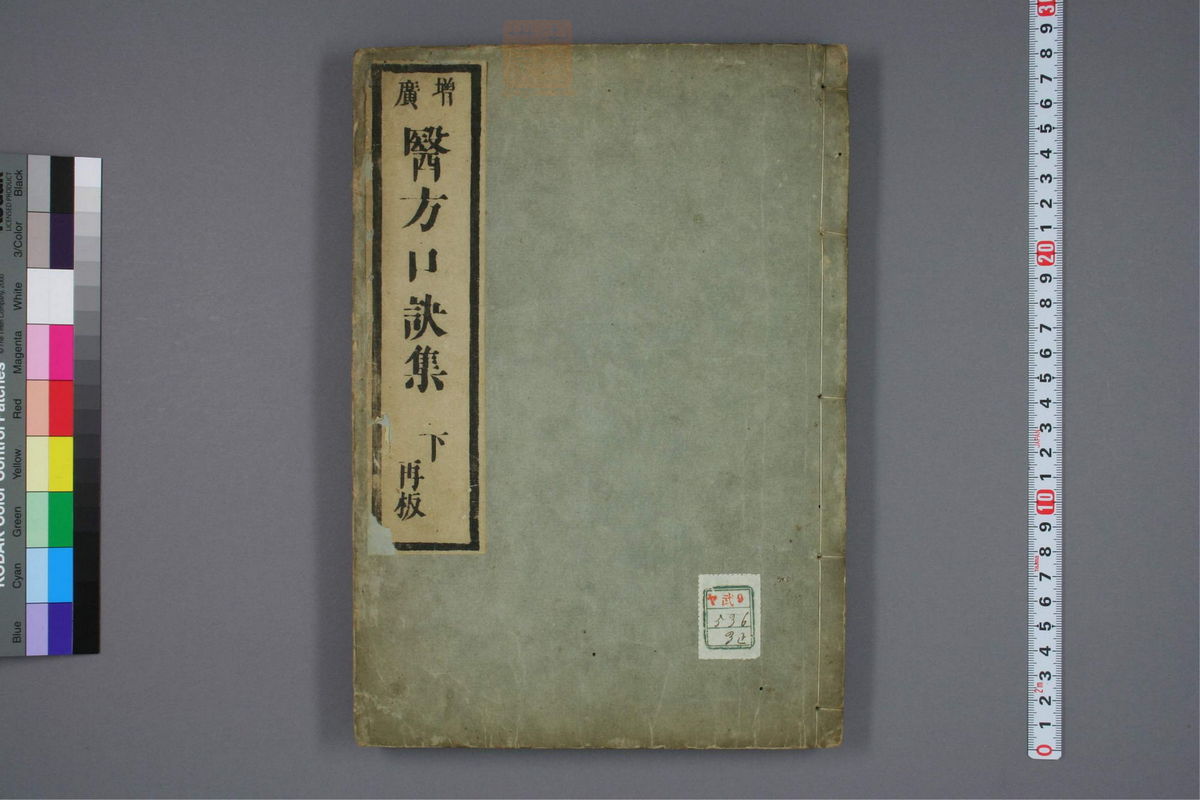 增廣
醫方口訣集
下
再板
武
536
3
Black
3/Color
White
Magenta
Red
Yellow
Green
Cyan
Blue
KODAK Color Control Patches
LICENSED PRODUCT
0 1 2 3 4 5 6 7 8 9 10 1 2 3 4 5 6 7 8 9 20 1 2 3 4 5 6 7 8 9
2m
JAPAN